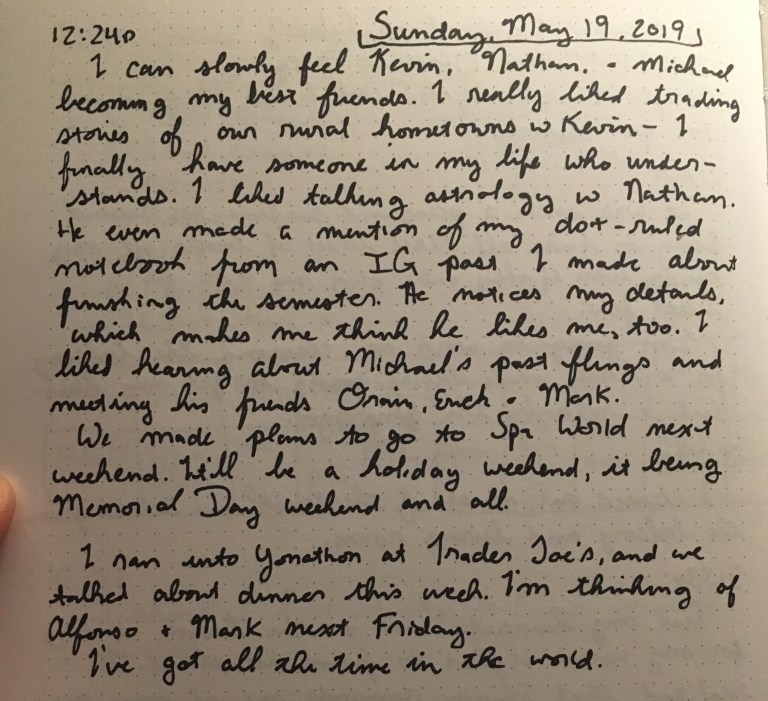 12:24p Sunday, May 19, 2019
I can slowly feel Kevin, Nathan, + Michael
becoming my best friends. I really liked trading
stories of our rural hometowns w Kevin – I
finally have someone in my life who under-
stands. I liked talking astrology w Nathan.
He even made a mention of my dot-ruled
notebook from an IG post I made about
finishing the semester. He notices my details,
which makes me think he likes me, too. I
liked hearing about Michael's past flings and
meeting his friends Orain, Erich + Mark.
We made plans to go to Spa World next
weekend. It'll be a holiday weekend, it being
Memorial Day weekend and all.
I ran into Yonathon at Trader Joe's, and we
talked about dinner this week. I'm thinking of
Alfonso + Mark next Friday.
I've got all the time in the world.